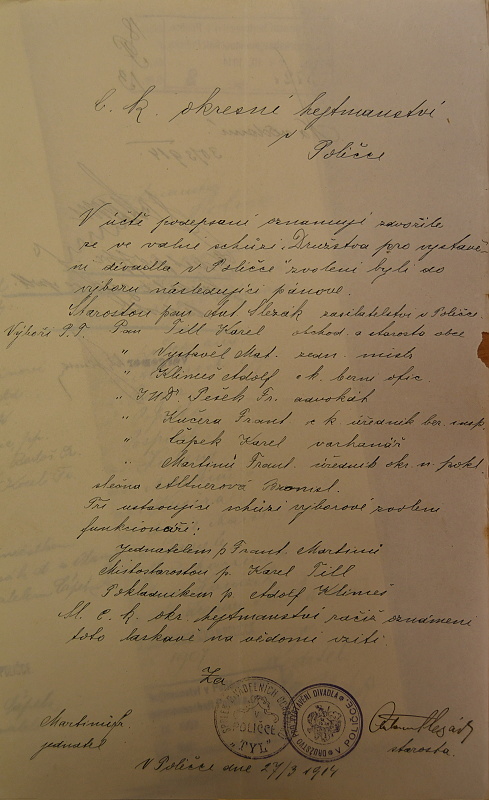 C. k. okresné hejtmanství
v
Poličce
V úctě podepsaní oznamují zdvořile
že ve valné schůzi „Družstva pro vystavě-
ní divadla v Poličce" zvoleni byli do
výboru následující pánové.
Starostou pan Ant Slezák zasilatelství v Poličce.
Výboři P. T. Pan Till Karel obchod. a starosta obce
" Vystavěl Mat. zedn. mistr
" Klimeš Adolf c. k. berní ofic.
" JUDr. Pešek Fr. advokát
" Kučera Frant c k úředník ber insp.
" Čápek Karel varhanář
" Martinů Frant. úředník okr. n. pokl.
slečna Altnerová Bromisl.
Při ustavující schůzi výborové zvoleni
funkcionáři:
Jednatelem p Frant. Martinů
Místostarostou p. Karel Till
Pokladníkem p. Adolf Klimeš
Sl. c. k. okr. hejtmanství račiž oznámení
toto laskavě na vědomí vzíti.
Za
POLIČCE
„TYL"
DRUŽSTVO PRO VYSTAVĚNÍ DIVADLA V POLIČCE
Martinů Fr.
jednatel
starosta.
V Poličce dne 27/3 1914